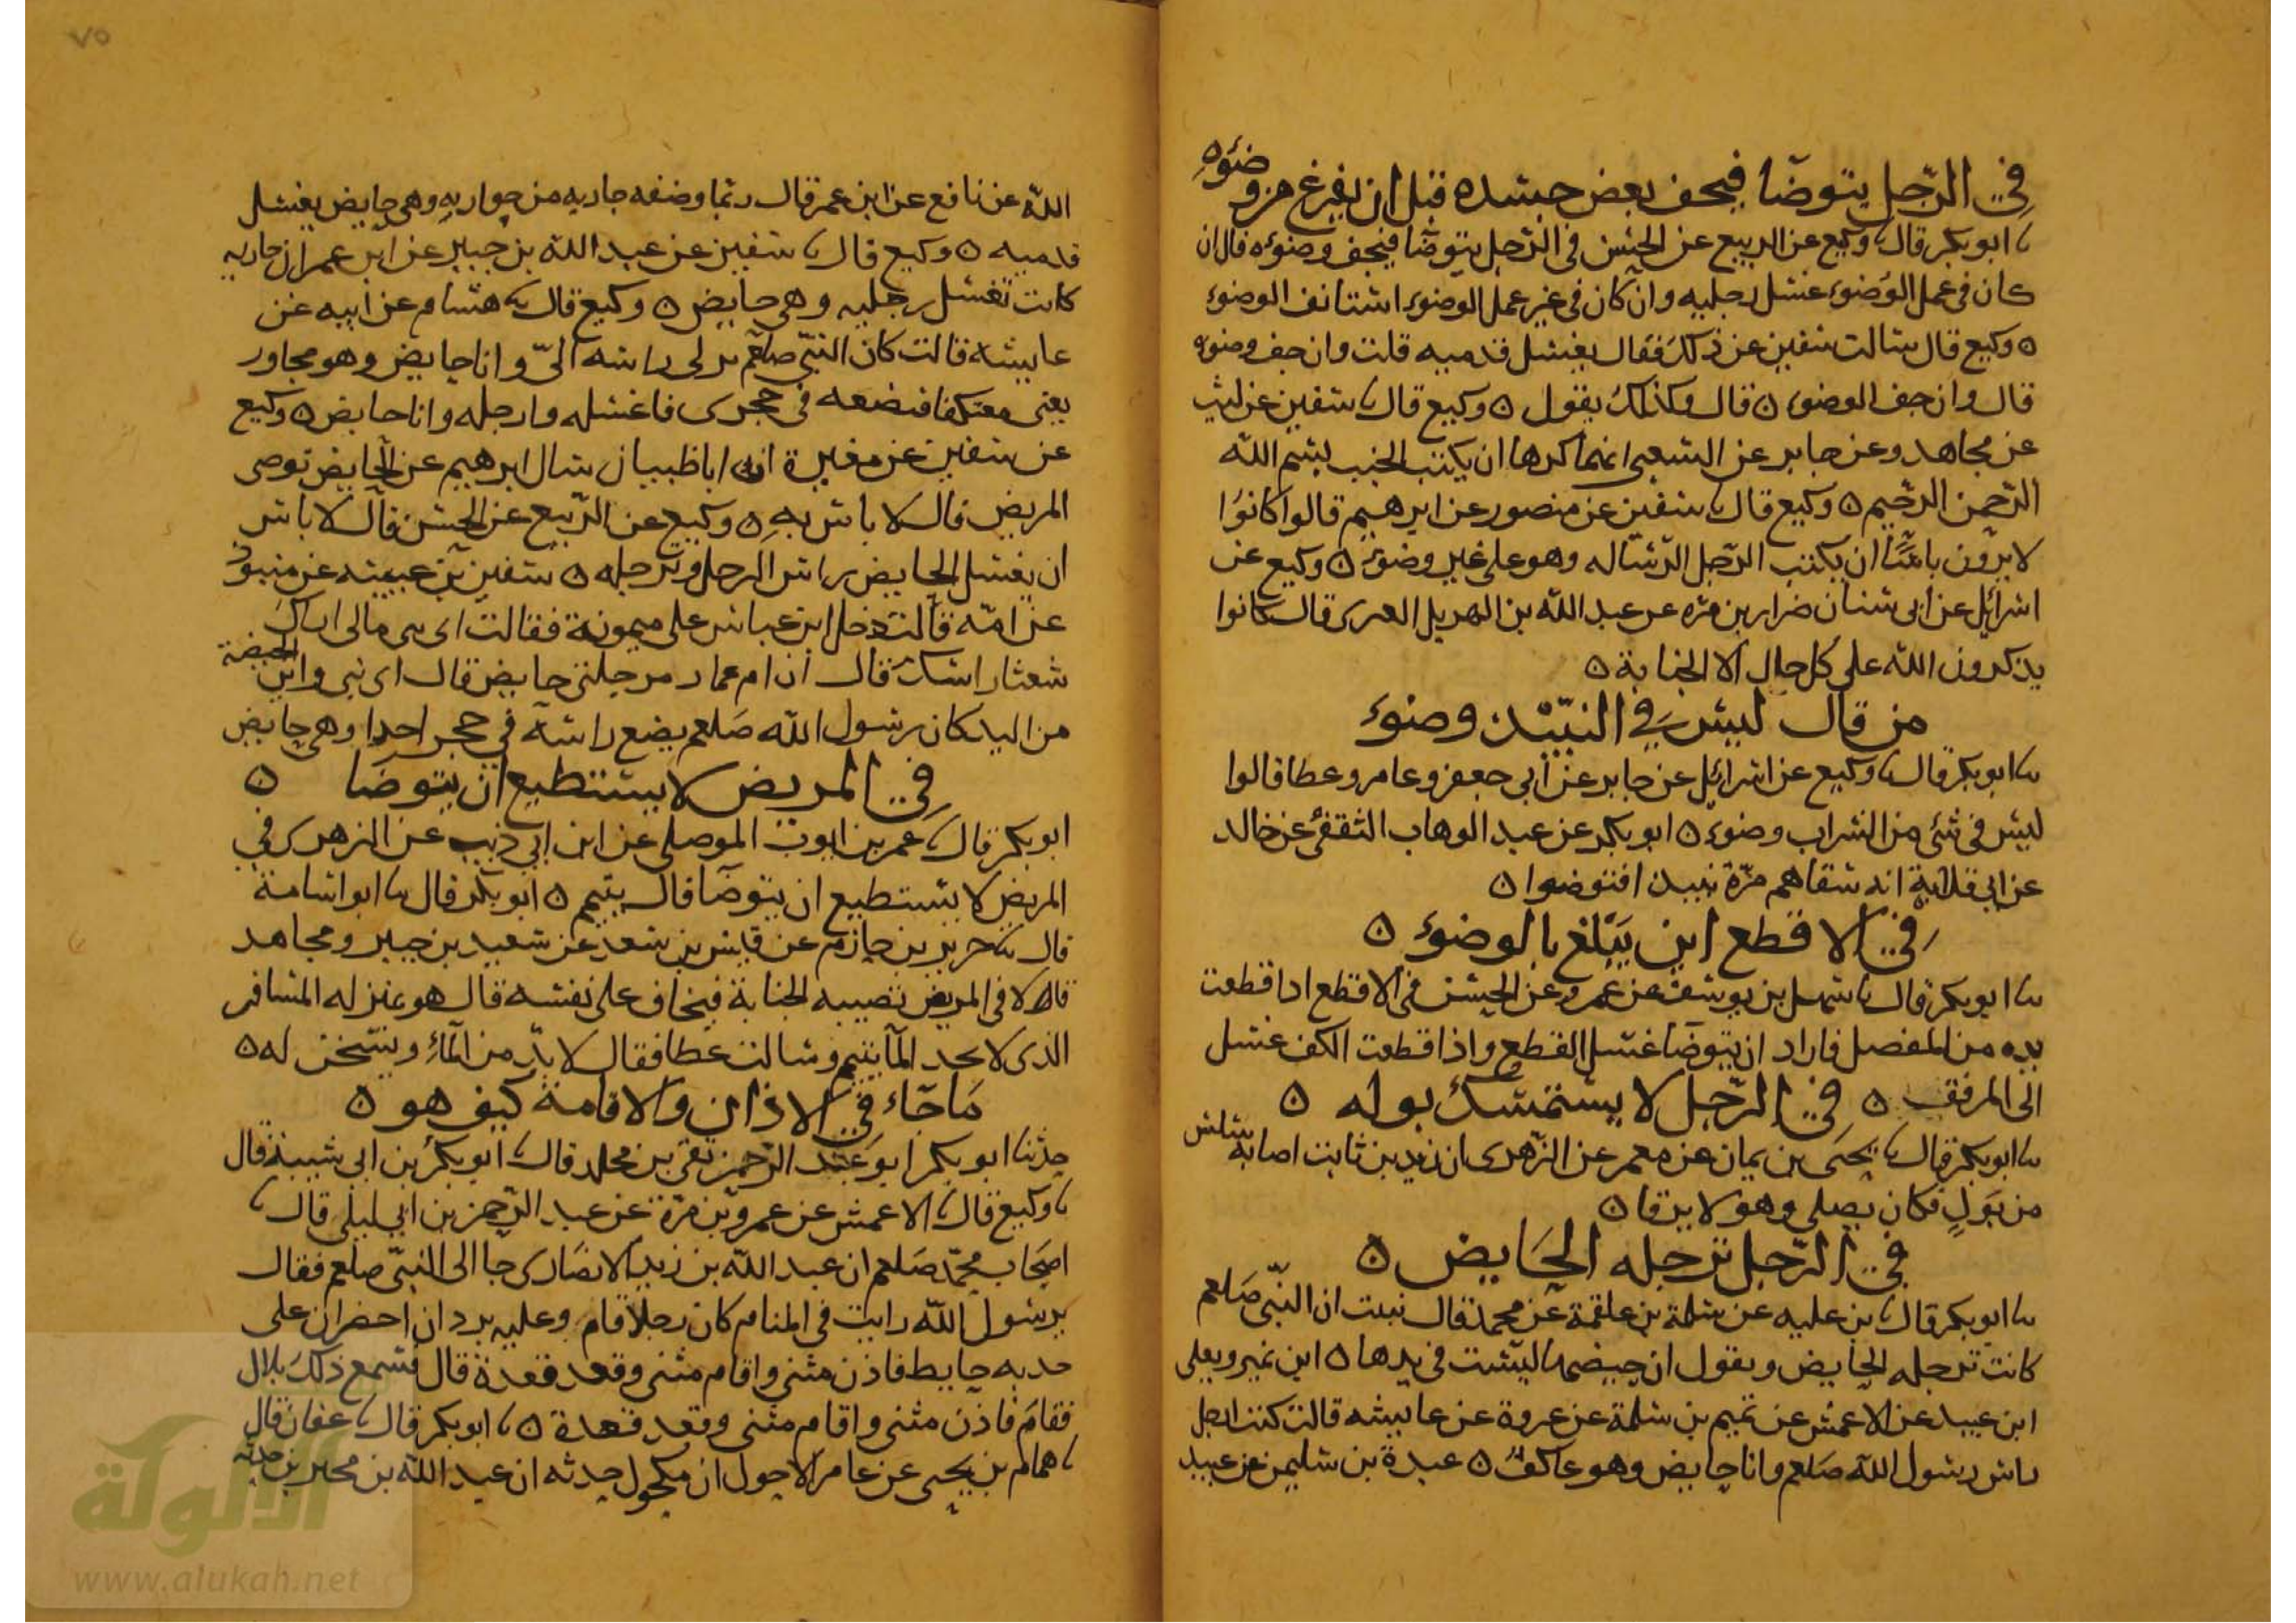 في الرّجل يتوضّا فيجف بعض جسده قبل ان يفرغ من وضوءه
نا ابو بكر قال نا وكيع عن الربيع عن الحسن في الرّجل يتوضّا فيجف وضوءه قال ان
كان في عمل الوُضوء غسل رجليه وان كان في غير عمل الوضوء استانف الوضوء
ه وكيع قال سالت سفين عن ذلك فقال يغسل قدميه قلت وان جف وضوءه
قال وان جف الوضوء ه قال وكذلك يقول ه وكيع قال نا سفين عن ليث
عن مجاهد وعن جابر عن الشعبي انهما كرها ان يكتب الجنب بسم الله
الرّحمن الرّحيم ه وكيع قال نا سفين عن منصور عن ابرهيم قالوا كانوُا
لا يرَون باسًا ان يكتب الرّجل الرّسالة وهو على غير وضوء ه وكيع عن
اسرائيل عن ابي سنان ضرار بن مره عن عبد الله بن الهديل العنزى قال كانوا
يذكرون الله على كل حال الا الجنابة ه
من قال ليسَ في النبيْذ وضوء
نا ابو بكر قال نا وكيع عن اسرائيل عن جابر عن أبي جعفر وعامر وعطا قالوا
ليس في شئ من الشراب وضوء ه ابو بكر عن عبد الوهاب الثقفى عن خالد
عن ابي قلابة انه سقاهم مرّة نبيذا فتوضوا ه
في الاقطع اين يَبْلغ بالوضوء ه
نا ابو بكر قال نا سهل بن يوسف عن عمرو عن الحسن في الاقطع اذا قطعت
يده من المفصل فاراد ان يتوضّا غسل القطع واذا قطعت الكف غسل
الى المرفق ه في الرّجل لا يستمسك بوله ه
نا ابو بكر قال نا يحيَى بن يمان عن معمر عن الزّهرى ان زيد بن ثابت اصابه سلس
من بَولٍ فكان يصلى وهو لا يرقا ه
في الرّجل ترجله الحَايض ه
نا ابو بكر قال نا بن عليه عن سلمة بن علقمة عن محمد قال نبئت ان النّبي صَلعم
كانت ترجله الحايض ويقول ان حيضها ليست في يدها ه ابن نمير ويعلى
ابن عبيد عن الاعمش عن تميم بن سلمة عن عروة عن عايشه قالت كنت ارجل
راس رسول الله صَلعم وانا حايض وهو عاكفٌ ه عبدة بن سليمن عن عبيد
٧٥
الله عن نافع عن ابن عمر قال ربّما وضفه جاريه من جواريهِ وهي حايض يغسل
قدميه ه وكيع قال نا سفين عن عبد الله بن جبير عن ابن عمر ان جاريه
كانت تغسل رجليه وهي حايض ه وكيع قال نا هشام عن ابيه عن
عايشة قالت كان النبّي صلعم يدلى راسه الىّ وانا حايض وهو مجاور
يعني معتكفا فيضعه في حجرى فاغسله وارجله وانا حايض ه وكيع
عن سفين عن مغيرة ان اباظبيان سال ابرهيم عن الحايض توضى
المريض قال لا باس بهِ ه وكيع عن الرّبيع عن الحسن قال لا باس
ان يغسل الحايض راس الرجل وترجله ه سفين بن عيينه عن منبوذ
عن امّه قالت دخل ابن عباس على ميمونة فقالت اى بنى مالى اراك
شعثا راسك قال ان ام عمار مرجلتى حايض قال اى بني واين الحيضة
من اليد كان رسول الله صَلعم يضع راسَه في حجر احدا وهي حايض
في المريض لا يستطيع ان يتوضا ه
ابو بكر قال نا عمر بن ايوب الموصلى عن ابن ابي ذيب عن الزهرى في
المريض لا يستطيع ان يتوضّا قال يتيمم ه ابو بكر قال نا ابو اسامة
قال نا جرير بن حازم عن قيس بن سعد عن سعيد بن جبير ومجاهد
قالا في المريض تصيبه الجنابة فيخاف على نفسه قال هو بمنزلة المسافر
الذى لا يجد المآ يتيمم وسالت عطا فقال لا بدّ من المآءِ ويسّخن له ه
مَا جَاء في الاذان والاقامة كيف هو ه
حدثنا ابو بكر ابو عبد الرّحمن بقى بن مخلد قال نا ابو بكر بن ابي شيبة قال
نا وكيع قال نا الاعمش عن عمرو بن مرّة عن عبد الرّحمن بن ابي ليلى قال نا
اصحاب محمّد صَلعم ان عبد الله بن زيد الانصَارى جا الى النبّي صلعم فقال
يرسول الله رايت في المنام كان رجلا قام وعليه بردان اخضران على
جدبه حايط فاذن مثنى واقام مثنى وقعد قعدة قال فسمع ذلك بلال
فقامَ فاذن مثنى واقام مثنى وقعد قعدة ه نا ابو بكر قال نا عفان قال
نا همام بن يحيى عن عامر الاحول ان مكحول حدثه ان عبد الله بن محيريز حدثه
الألوكة
www.alukah.net